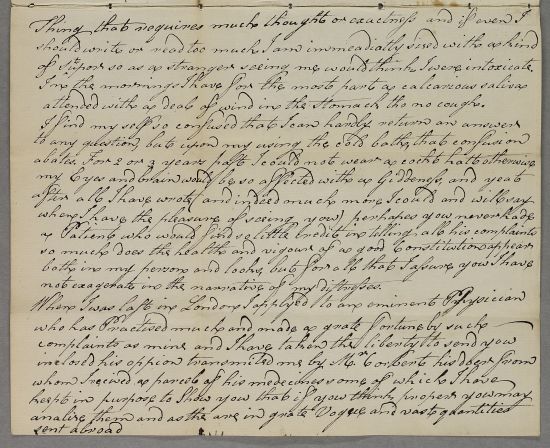 Thing that requires much thought or exactness and if even I
should write or read too much I am immediadly sized with a kind
of Stupor so as a stranger seeing me would think I were intoxicate
In the mornings I have for the most part a calcarious saliva
attended with a deal of wind in the Stomach tho no cough.
I find my self so confused that I can hardly return an answer
to any question, but upon my using the cold bath, that confusion
abates. For 2 or 3 years past I could not wear a cockt hatt otherwise
my Eyes and brain would be so affected with a Giddeness, and yeat
after all I have wrote (and indeed much more I could and will say
when I have the pleasure of seeing you) perhapes you never had
a Patient who would find so little Credit in telling all his complaints
so much does the health and vigour of a good Constitution appear
both in my person and looks, but for all that I assure you I have
not exagerate in the narrative of my distresses.
When I was last in London I applyed to an eminent Physician
who has Practised much and made a grate fortune by such
complaints as mine and I have taken the liberty to send you
inclosed his oppion transmitted me by Mr. Corbert his doer from
whom I received a parcel of his medecines some of which I have
keept in purpose to Shew you that if you think proper you may
analise them and as the are in grate Vogue and vast quantities
sent abroad